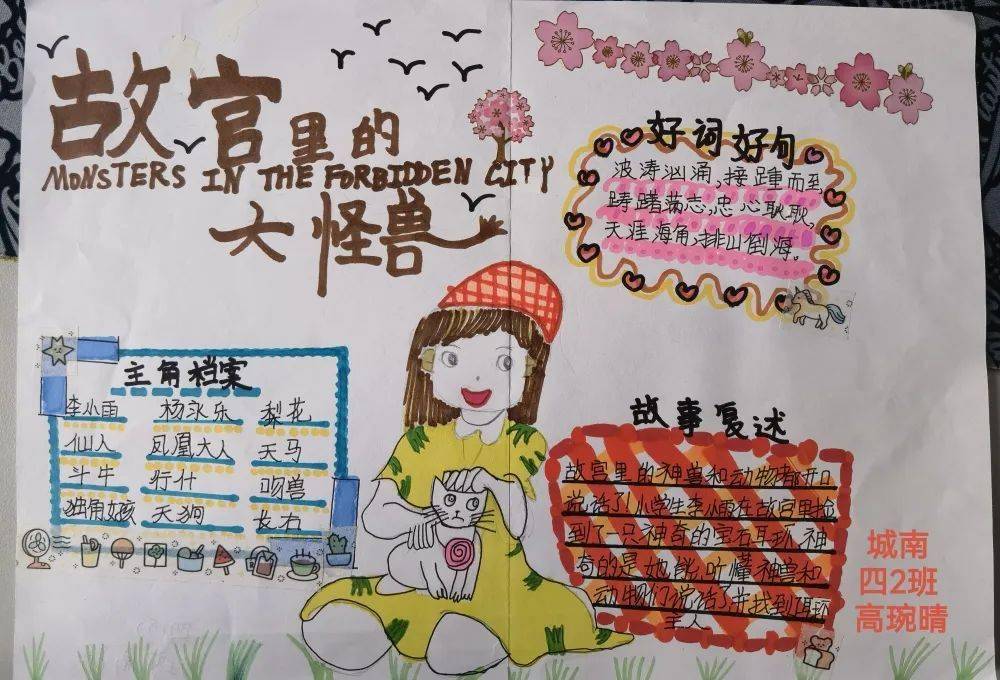 故宫里的
MONSTERS IN THE FORBIDDEN CITY
大怪兽
好词好句
波涛汹涌,接踵而至
踌躇满志,忠心耿耿,
天涯海角,排山倒海。
主角档案
李小雨 杨永乐 梨花
仙人 凤凰大人 天马
斗牛 行什 吻兽
独角女孩 天狗 长右
故事复述
故宫里的神兽和动物都开口
说话了小学生李小雨在故宫里捡
到了一只神奇的宝石耳环,神
奇的是,她能听懂神兽和
动物们说话了,并找到耳环
主人
城南
四2班
高琬晴